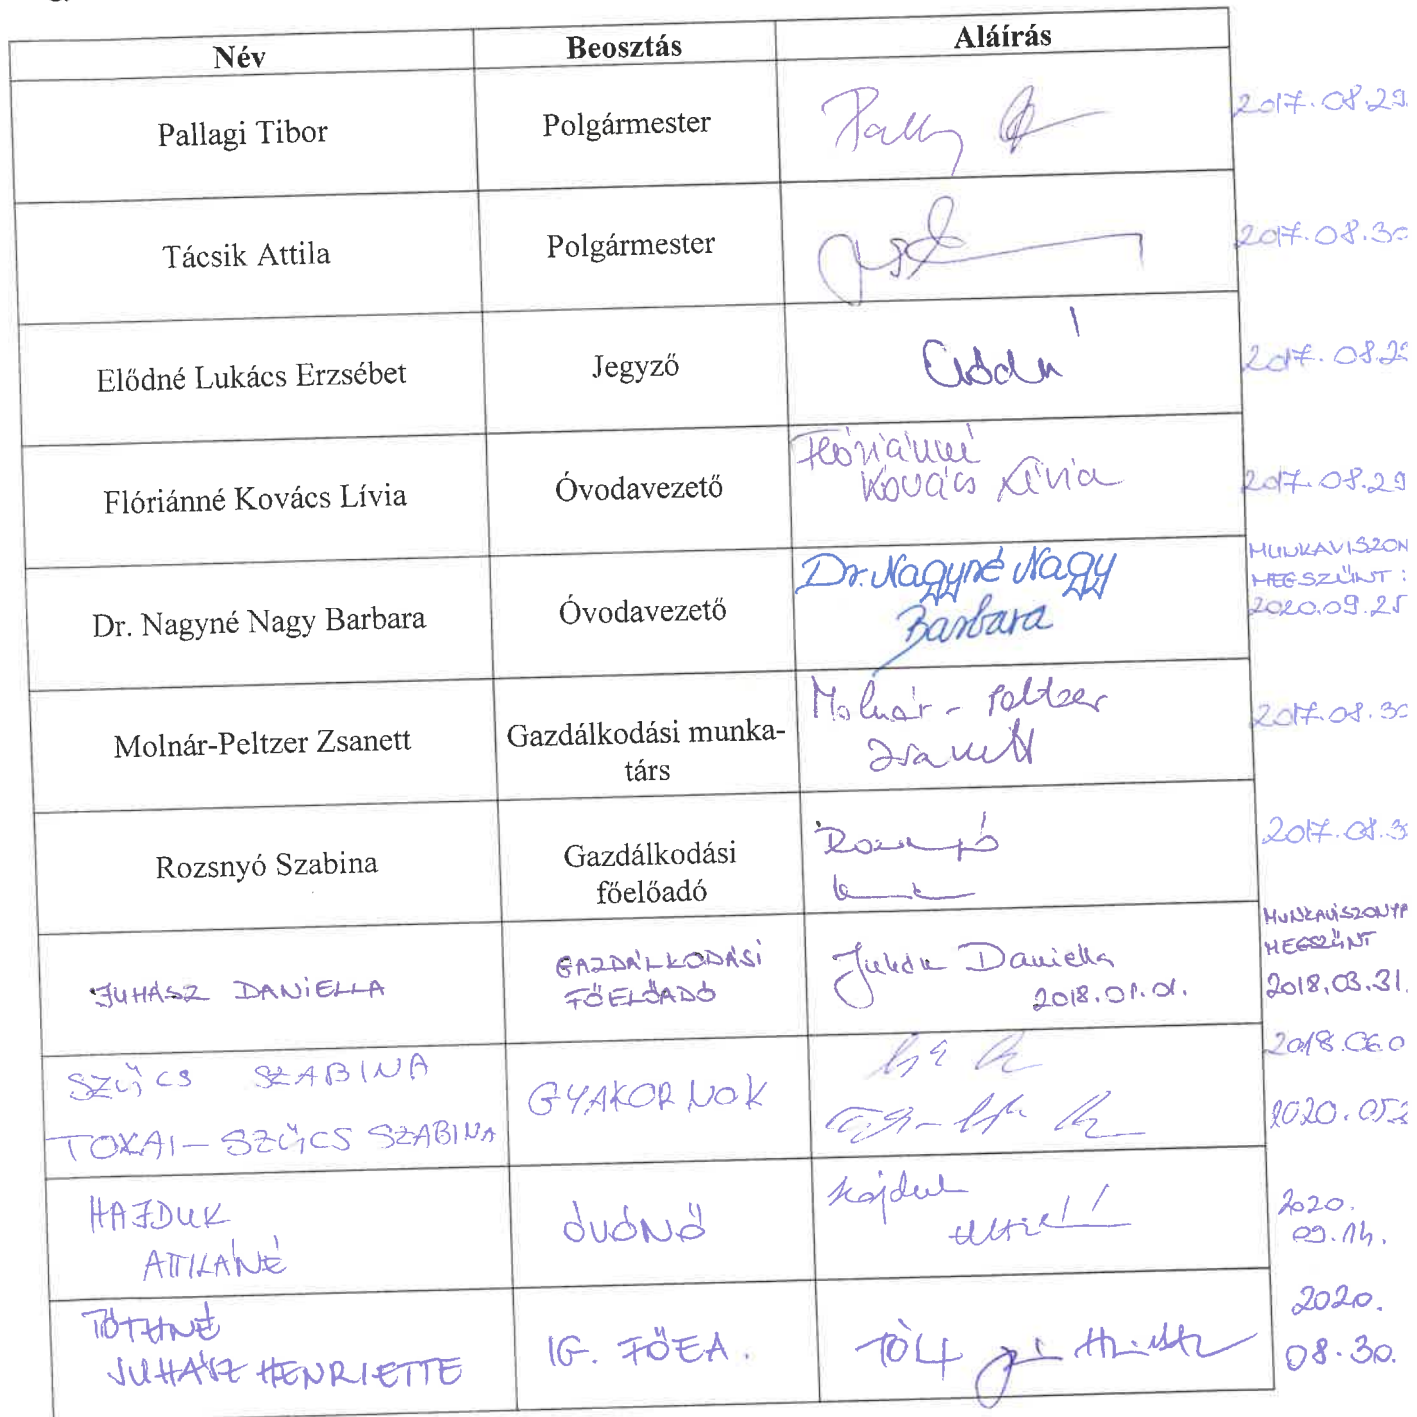 Név Beosztás Aláírás
Pallagi Tibor Polgármester 2017.08.29.
Tácsik Attila Polgármester 2017.08.30
Elődné Lukács Erzsébet Jegyző Elődné 2017.08.29
Flóriánné Kovács Lívia Óvodavezető Flóriánné
Kovács Lívia 2017.08.29
Dr. Nagyné Nagy Barbara Óvodavezető Dr. Nagyné Nagy
Barbara
MUNKAVISZON
MEGSZŰNT:
2020.09.25
Molnár-Peltzer Zsanett Gazdálkodási munka-
társ
Molnár-Peltzer
Zsanett
2017.08.30
Rozsnyó Szabina Gazdálkodási
főelőadó
Rozsnyó
2017.08.3
JUHÁSZ DANIELLA GAZDÁLKODÁSI
FŐELŐADÓ
Juhász Daniella
2018.01.01.
MUNKAVISZONYA
MEGSZŰNT
2018.03.31.
SZŰCS SZABINA
TOKAI-SZŰCS SZABINA
GYAKORNOK
2018.06.0
2020.05.2
HAJDUK
ATTILÁNÉ
ÓVÓNŐ
Hajduk
2020.
09.14.
TÓTHNÉ
JUHÁSZ HENRIETTE
IG. FŐEA.
2020.
08.30.